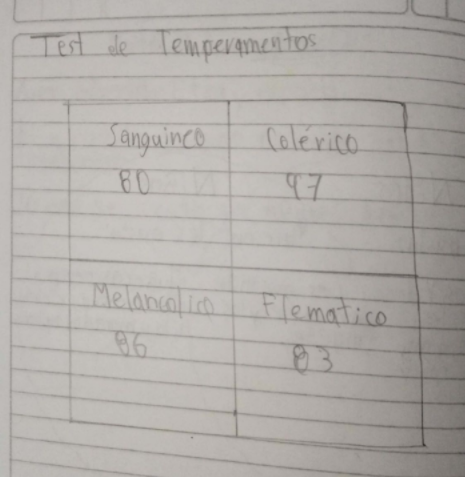 Test de Temperamentos
Sanguineo Colérico
80 97
Melancolico Flematico
86 83